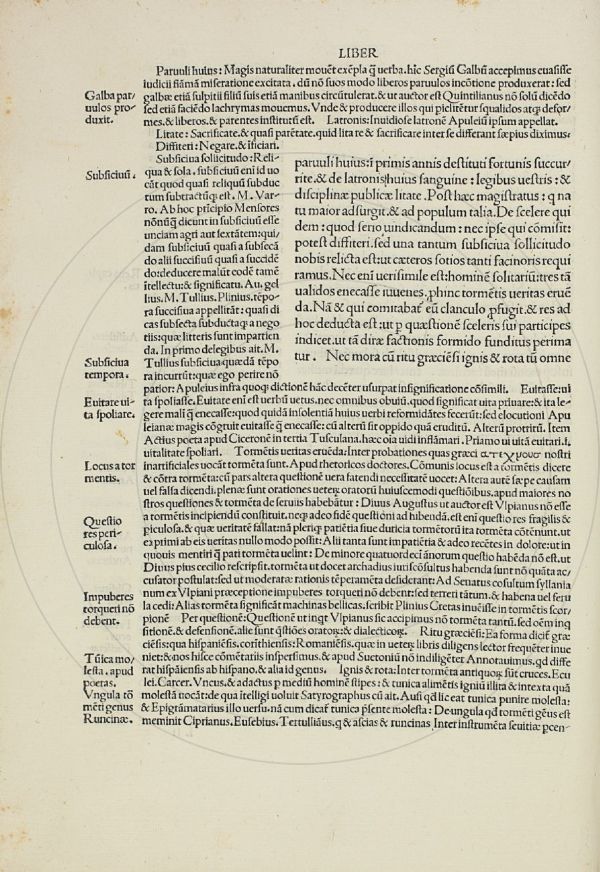 LIBER
Paruuli huius: Magis naturaliter mouẽt exẽpla q̃ uerba. hic Sergiũ Galbũ accepimus euasisse
iudicii flãmã miseratione excitata, dũ nõ suos modo liberos paruulos incõtione produxerat: sed
galbæ etiã sulpitii filiũ suis etiã manibus circũtulerat. & ut auctor est Quintilianus nõ solũ dicẽdo
sed etiã faciẽdo lachrymas mouemus. Vnde & producere illos qui piclitẽtur squalidos atq; defor
mes. & liberos, & parentes institutũ est. Latronis: Inuidiose latronẽ Apuleiũ ipsum appellat.
Litate: Sacrificate. & quasi parẽtate. quid litare & sacrificare inter se differant sæpius diximus.
Diffiteri: Negare. & ificiari.
Galba par/
uulos pro/
duxit.
Subsiciua sollicitudo: Reli-
qua & sola. subsiciuũ eni id uo
cãt quod quasi reliquũ subduc
tum subtractũq; est. M. Var-
ro. Ab hoc prĩcipio Mensores
nõnũq̃ dicunt in subsiciuũ esse
unciam agri aut sextãtem: qui/
dam subsiciuũ quasi a subsecã
do alii succisiuũ quasi a succidẽ
do: deducere malũt eodẽ tamẽ
itellectu: & significatu. Au. gel
lius. M. Tullius. Plinius. tẽpo/
ra succisiua appellitãt: quasi di
cas subsecta subductaq; a nego
tiis: quæ litteris sunt impartien
da. In primo delegibus ait. M.
Tullius subsiciua quædã tẽpo
ra incurrũt: quæ ego perire nõ
Subsiciuũ.
Subsiciua
tempora.
paruuli huius: ĩ primis annis destituti fortunis succur/
rite. & de latronis huius sanguine: legibus uestris: &
disciplinæ publicæ litate. Post hæc magistratus: q na
tu maior adsurgit. & ad populum talia. De scelere qui
dem: quod serio uindicandum: nec ipse qui cõmisit:
potest diffiteri. sed una tantum subsiciua sollicitudo
nobis relicta est: ut cæteros sotios tanti facinoris requi
ramus. Nec eni uerisimile est: hominẽ solitariũ: tres tã
ualidos enecasse iuuenes. phinc tormẽtis ueritas eruẽ
da. Nã & qui comitabat eũ clanculo pfugit. & res ad
hoc deducta est: ut p quæstionẽ sceleris sui participes
indicet. ut tã diræ factionis formido funditus perima
tur. Nec mora cũ ritu græciẽsi ignis & rota tũ omne
patior: Apuleius infra quoq; dictionẽ hãc decẽter usurpat insignificatione cõsimili. Euitasse: ui
ta spoliasse. Euitare eni est uerbũ uetus. nec omnibus obuiũ. quod significat uita priuare: & ita le-
gere mali q̃ enecasse: quod quidã insolentiã huius uerbi reformidãtes fecerũt: sed elocutioni Apu
leianæ magis cõgruit euitasse q̃ enecasse: cũ alterũ sit oppido quã eruditũ. Alterũ protritũ. Item
Actius poeta apud Ciceronẽ in tertia Tusculana. hæc oia uidi inflãmari. Priamo ui uitã euitari. i.
uitalitate spoliari. Tormẽtis ueritas eruẽda: Inter probationes quas græci ατεχνους nostri
inartificiales uocãt tormẽta sunt. Apud rhetoricos doctores. Cõmunis locus est a tormẽtis dicere
& cõtra tormẽta: cũ pars altera quæstionẽ uera fatendi necessitatẽ uocet: Altera autẽ sæpe causam
uel falsa dicendi. plenæ sunt orationes ueterq; oratorũ huiuscemodi quæstioibus. apud maiores no
stros quæstiones & tormẽta de seruiis habebãtur: Diuus Augustus ut auctor est Vlpianus nõ esse
a tormẽtis incipiendũ constituit. neq; adeo fidẽ quæstioni adhibendã. est eni quæstio res fragilis &
piculosa. & quæ ueritatẽ fallat: nã pleriq; patiẽtia siue duricia tormẽtorũ ita tormẽta cõtẽnunt. ut
exprimi ab eis ueritas nullo modo possit: Alii tanta sunt impatiẽtia & adeo recẽtes in dolore: ut in
quouis mentiri q̃ pati tormẽta uelint: De minore quatuordeci ãnorum quæstio habẽda nõ est. ut
Diuus pius cecilio rescripsit. tormẽta ut docet archadius iurisconsultus habenda sunt nõ quãta ac/
cusator postulat: sed ut moderatæ rationis tẽperamẽta desiderant: Ad Senatus cõsultum syllania
num ex Vlpiani præceptione impuberes torqueri nõ debent: sed terreri tãtum. & habena uel feru
la cedi: Alias tormẽta significãt machinas bellicas. scribit Plinius Cretas inuẽisse in tormẽtis scor/
pionẽ Per quæstionẽ: Quæstionẽ ut inqt Vlpianus sic accipimus nõ tormẽta tantũ. sed oẽm inq
sitionẽ. & defensionẽ. alie sunt q̃stiões oratorq; & dialecticorq;. Ritu græciẽsi: Ea forma dicif græ
ciẽsi: qua hispaniẽsi. corĩthiẽsis: Romaniẽsis. quæ in ueterq; libris diligens lector frequẽter inue
niet: & nos hisce cõmẽtariis inspersimus. & apud Suetoniũ nõ indiligẽter Annotauimus. qd differat
hispaniẽsis ab hispano. & alia id genus. Ignis & rota: Inter tormẽta antiquorq; sũt cruces. Ecu
lei. Carcer. Vncus. & adactus p mediũ hominẽ stipes: & tunica alimẽtis igniũ illita & intexta quã
molestã uocãt: de qua itelligi uoluit Satyrographus cũ ait. Ausi qd liceat tunica punire molesta:
& Epigrãmatarius illo uersu. nã cum dicat tunica p̃sente molesta: De ungula qd tormẽti gẽus est
meminit Ciprianus. Eusebius. Tertulliãus. q & ascias & runcinas Inter instrumẽta seuitiæ pcen-
Euitare ui/
ta spoliare.
Locus a tor
mentis.
Quæstio
res peri-
culosa.
Impuberes
torqueri nõ
debent.
Tũica mo/
lesta. apud
poetas.
Vngula tõ
mẽti genus
Runcinæ.